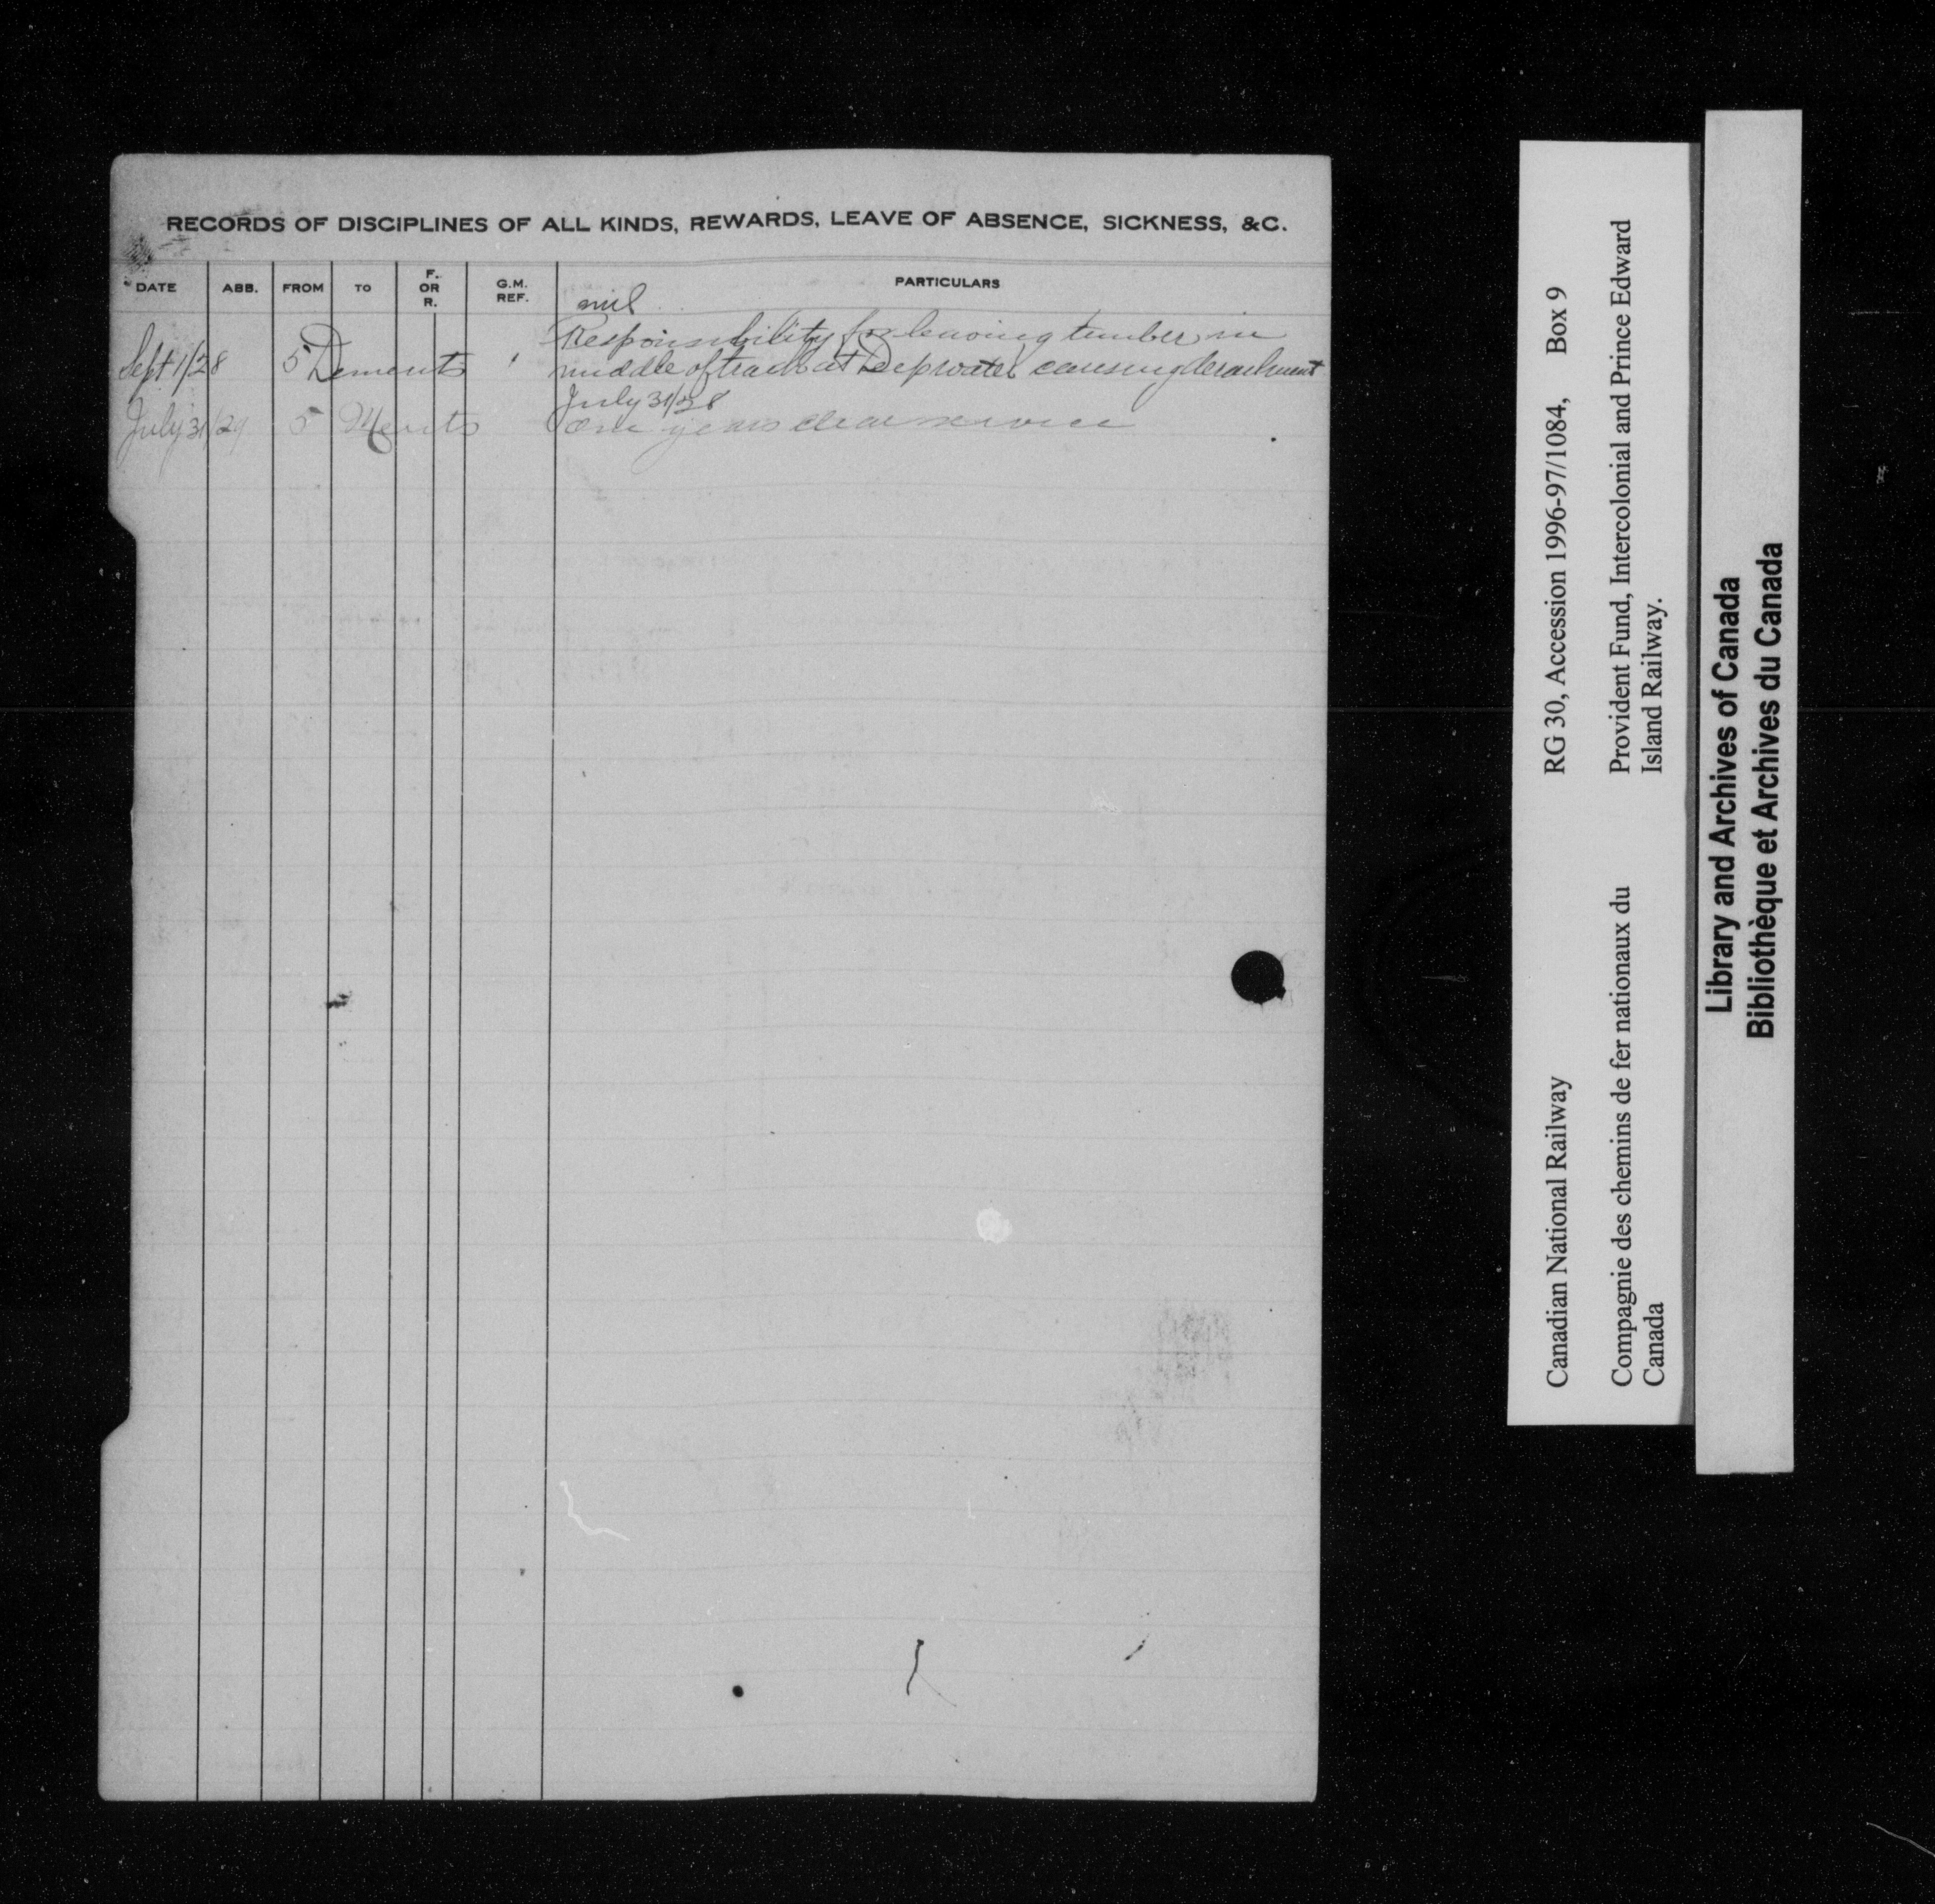 RECORDS OF DISCIPLINES OF ALL KINDS, REWARDS, LEAVE OF ABSENCE, SICKNESS, &C.
DATE ABB. FROM TO F. OR R. G.M. REF. PARTICULARS
nil
Responsibility for leaving timber in
Sept 1/28 5 Demerits middle of track at Deepwater causing derailment
July 31/28
July 31/29 5 Merits One years clear service
RG 30, Accession 1996-97/1084, Box 9
Provident Fund, Intercolonial and Prince Edward
Island Railway.
Canadian National Railway
Compagnie des chemins de fer nationaux du
Canada
Library and Archives of Canada
Bibliothèque et Archives du Canada